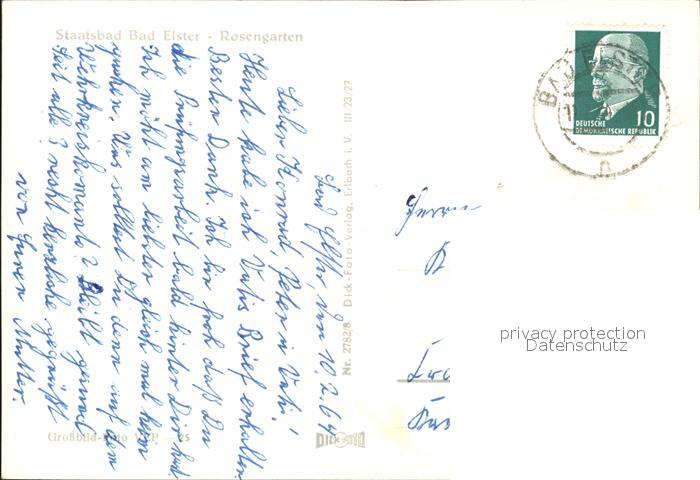 Staatsbad Bad Elster - Rosengarten
Bad Elster, den 10.2.64
Lieber Konrad, Peter u. Vati!
Heute habe ich Vatis Brief erhalten.
Besten Dank. Ich bin froh daß Du
die Prüfungsarbeit bald hinter Dir hast.
Ich möcht am liebsten gleich mal heim
gucken. Was solltest Du denn auf dem
Wehrkreiskomando? Bleibt gesund
seit alle 3 recht herzliche gegrüßt
von Eurer Mutter.
Großbild-Foto
25
Nr. 2782/8 Dick-Foto-Verlag, Erlbach i. V. III 23/27
DICK FOTO
BAD ELSTER
10
DEUTSCHE
DEMOKRATISCHE REPUBLIK
Herrn
privacy protection
Datenschutz